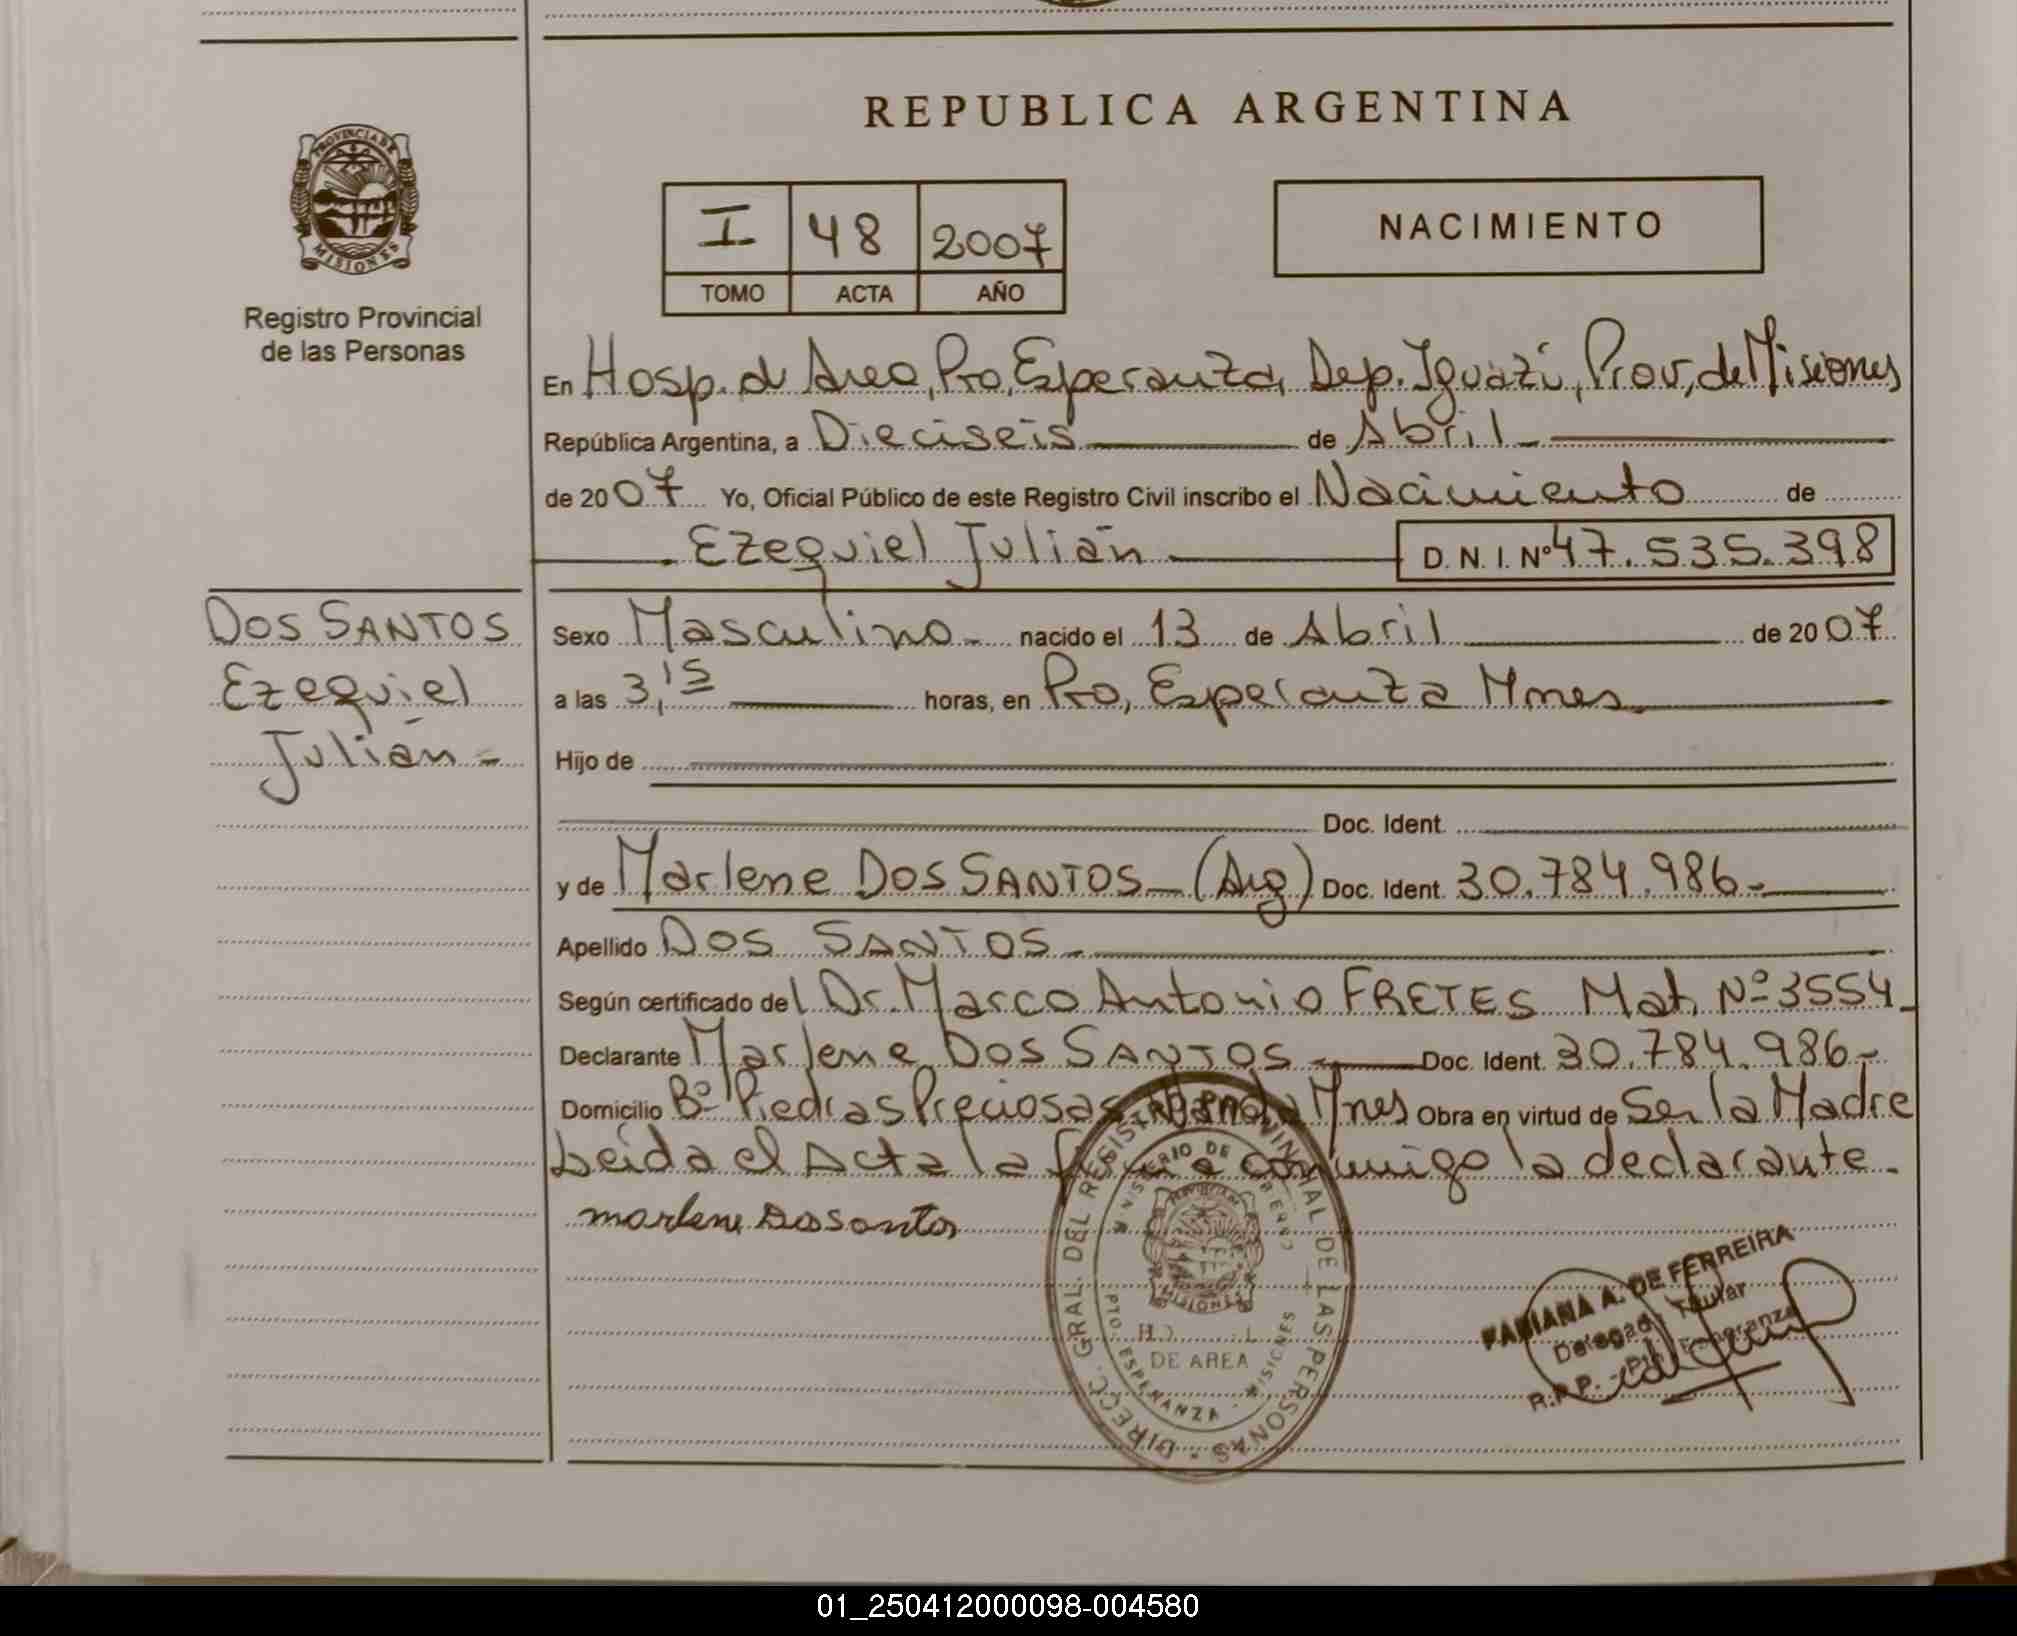 REPUBLICA ARGENTINA
PROVINCIA DE
MISIONES
Registro Provincial
de las Personas
I 48 2007
TOMO ACTA AÑO
NACIMIENTO
En Hosp. d Area, Pto, Esperanza, Dep. Iguazú, Prov, de Misiones
República Argentina, a Dieciseis de Abril
de 2007 Yo, Oficial Público de este Registro Civil inscribo el Nacimiento de
Ezequiel Julián D. N. I. Nº 47.535.398
DOS SANTOS
Ezequiel
Julián -
Sexo Masculino - nacido el 13 de Abril de 2007
a las 3,15 horas, en Pto, Esperanza Mnes
Hijo de
Doc. Ident.
y de Marlene DOS SANTOS - (Arg) Doc. Ident. 30.784.986-
Apellido DOS SANTOS -
Según certificado del Dr. Marco Antonio FRETES Mat. Nº 3554-
Declarante Marlene DOS SANTOS - Doc. Ident. 30.784.986-
Domicilio Bº Piedras Preciosas Wanda Mnes Obra en virtud de Ser la Madre
Leida el Acta la firma conmigo la declarante.
marlene Dos santos
DIRECC. GRAL. DEL REGISTRO PROVINCIAL DE LAS PERSONAS
MINISTERIO DE
MISIONES
DE AREA
PTO. ESPERANZA - MISIONES
FABIANA A. DE FERREIRA
Delegada Titular
R.P.P. - Pto. Esperanza
01_250412000098-004580